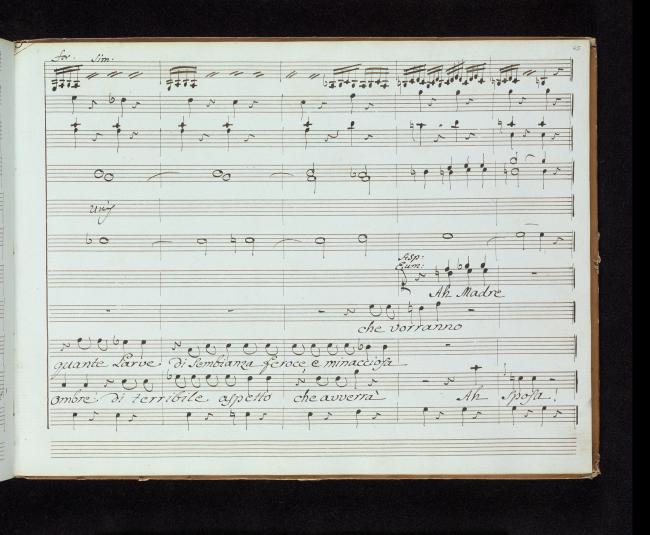 for. sim.
unis
Asp:
Eum:
Ah Madre
che vorranno
quante Larve di Sembianza feroce, e minacciosa
Ombre di terribile aspetto che avverrà Ah Sposa!